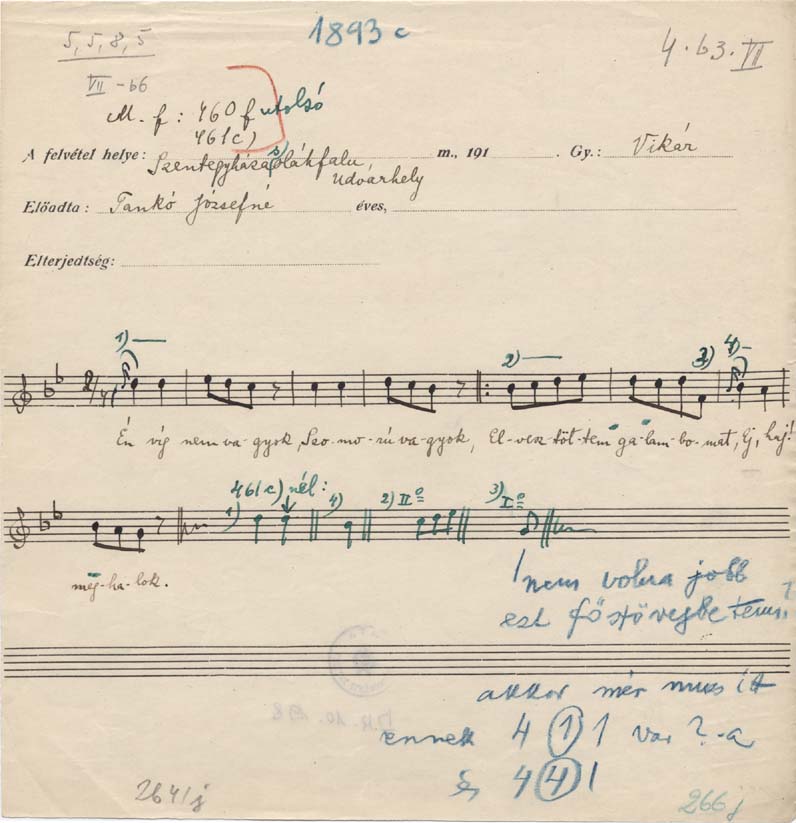 5, 5, 8, 5
1893 c
4·b3·VII
VII - b6
M. f: 460 f utolsó
461c)
A felvétel helye: Szentegyházasoláhfalu, m., 191 . Gy.: Vikár
Udvarhely
Előadta: Tankó Józsefné éves,
Elterjedtség:
1) 2) 3) 4)
2/4
Én víg nem va-gyok, Szo-mo-rú va-gyok, El-vesz-töt-tem ga-lam-bo-mat, Ej, haj!
461c) nél:
1) 4) 2) II° 3) I°
meg-ha-lok.
nem volna jobb
ezt főszövegbe tenni?
akkor mér
ennek 4 1 1 var ?-a
és 4 4 1
2641j
266j